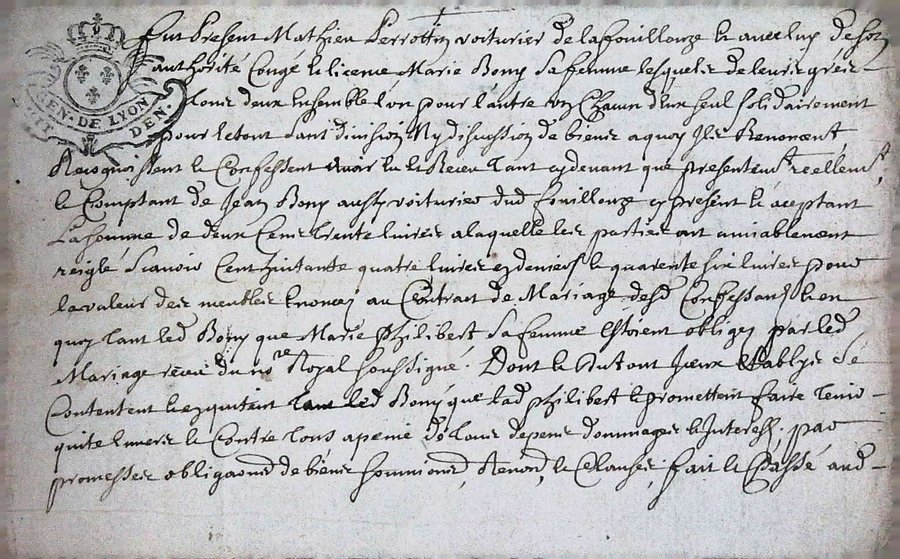 GEN. DE LYON
DEN.
Fut Present Mathieu Perrottin voiturier de la fouillouze et avec luy de son
authorité Congé et licence Marie Bony sa femme lesquels de leurs grés
Tous deux Ensemble l'un pour l'autre un Chacun d'eux seul solidairement
pour le tout sans division Ny discussion de biens a quoy Ils Renoncent
Recognoissent et Confessent avoir eu et Receu Tant cydevant que presentemt reellemt
et Comptant de Jean Bony aussy voiturier dud fouillouze cy present et aceptant
La somme de deux Cens trente livres a laquelle les parties ont amiablement
reiglé scavoir Cent huitante quatre livres en deniers et quarente six livres pour
la valeur des meubles Enoncez au Contrat de Mariage desd Confessans et en
quoy tant led Bony que Marie Philibert sa femme Estoient obligez par led
Mariage receu du nore Royal soussigné. Dont et du tout Iceux Establys se
Contentent et en quittent led Bony que lad Philibert et promettent faire tenir
quite Envers et Contre tous a peine de tous depens dommages et Interest, par
promesses obligaons de biens soumions, Renons, et Clauses, fait et Passé aud